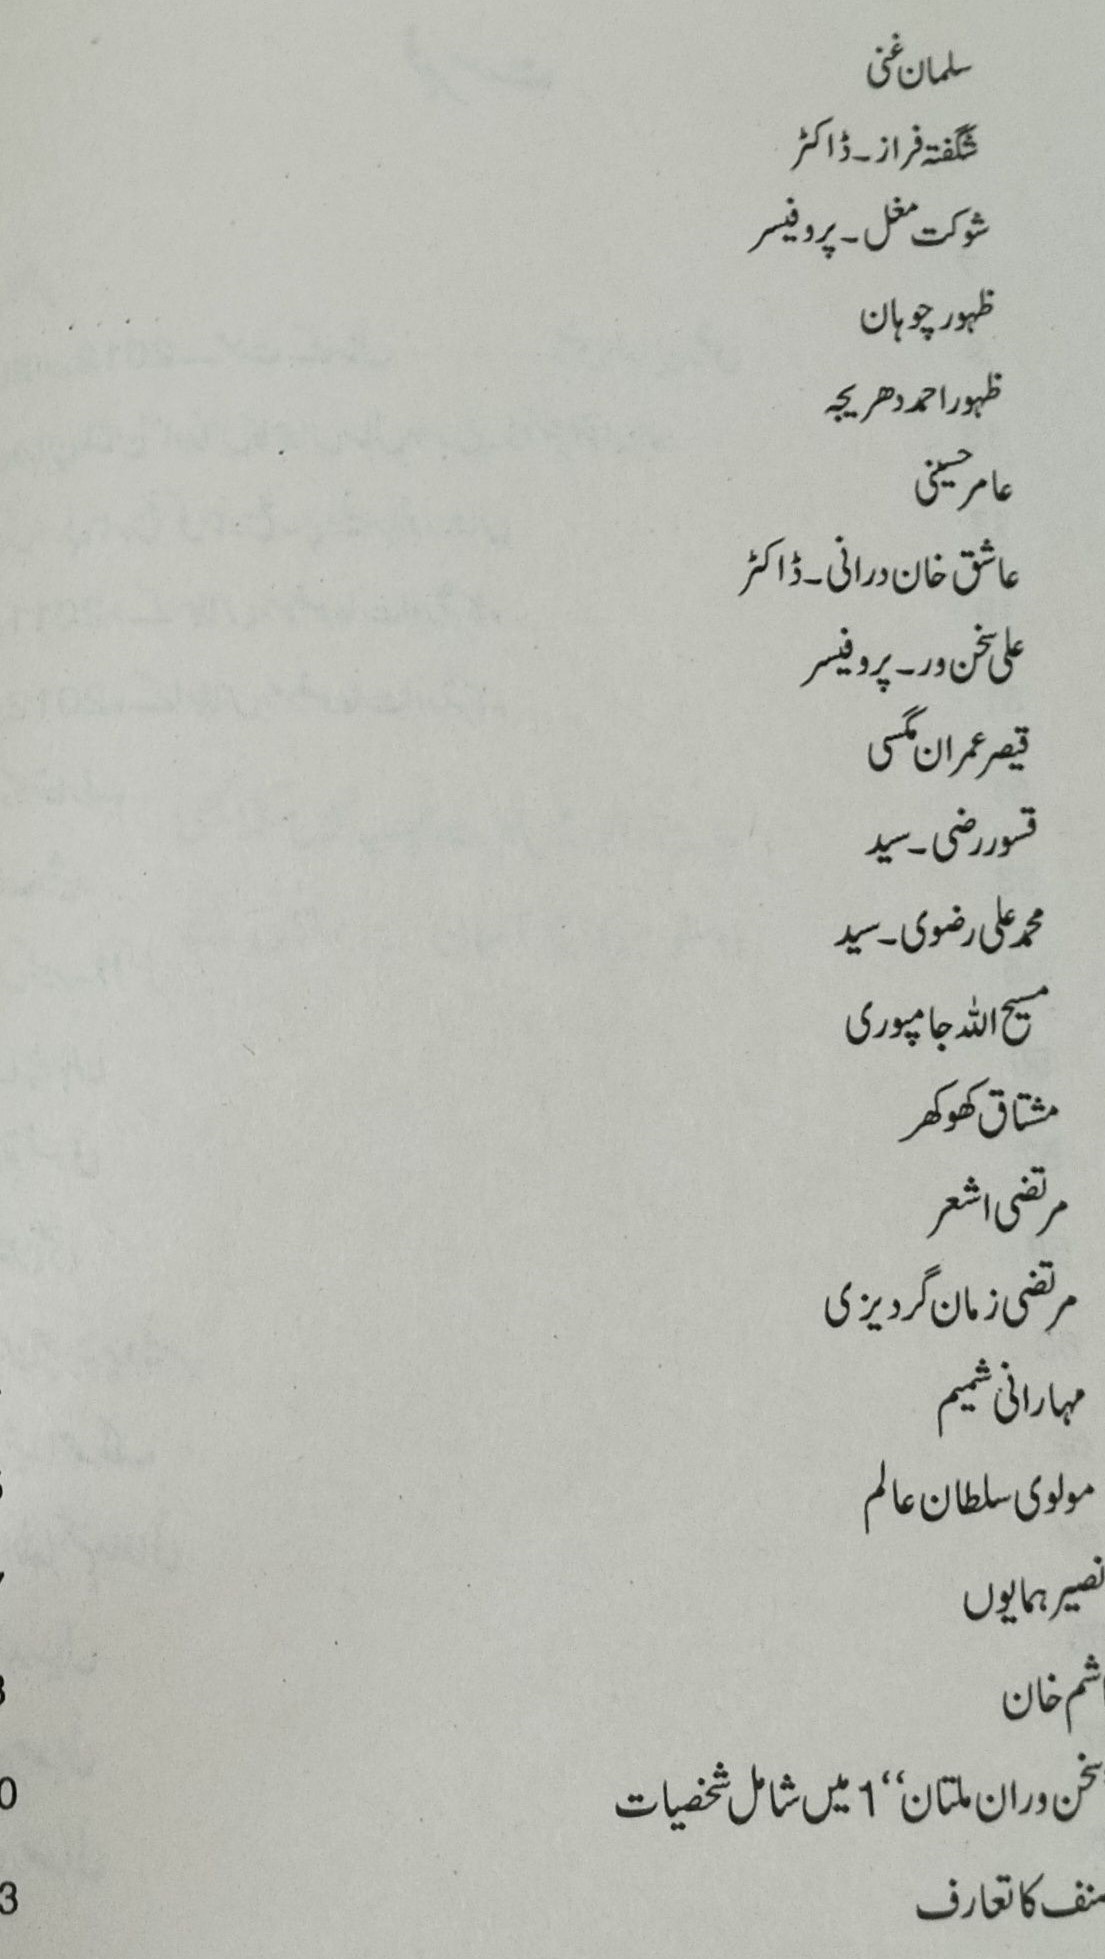 سلمان غنی
شگفتہ فراز۔ڈاکٹر
شوکت مغل۔پروفیسر
ظہور چوہان
ظہور احمد دھریجہ
عامر حسینی
عاشق خان درانی۔ڈاکٹر
علی سخن ور۔پروفیسر
قیصر عمران مگسی
قسور رضی۔سید
محمد علی رضوی۔سید
مسیح اللہ جامپوری
مشتاق کھوکھر
مرتضی اشعر
مرتضی زمان گردیزی
مہارانی شمیم
مولوی سلطان عالم
نصیر ہمایوں
خان
سخن وران ملتان‘‘ 1 میں شامل شخصیات 0
کا تعارف 3